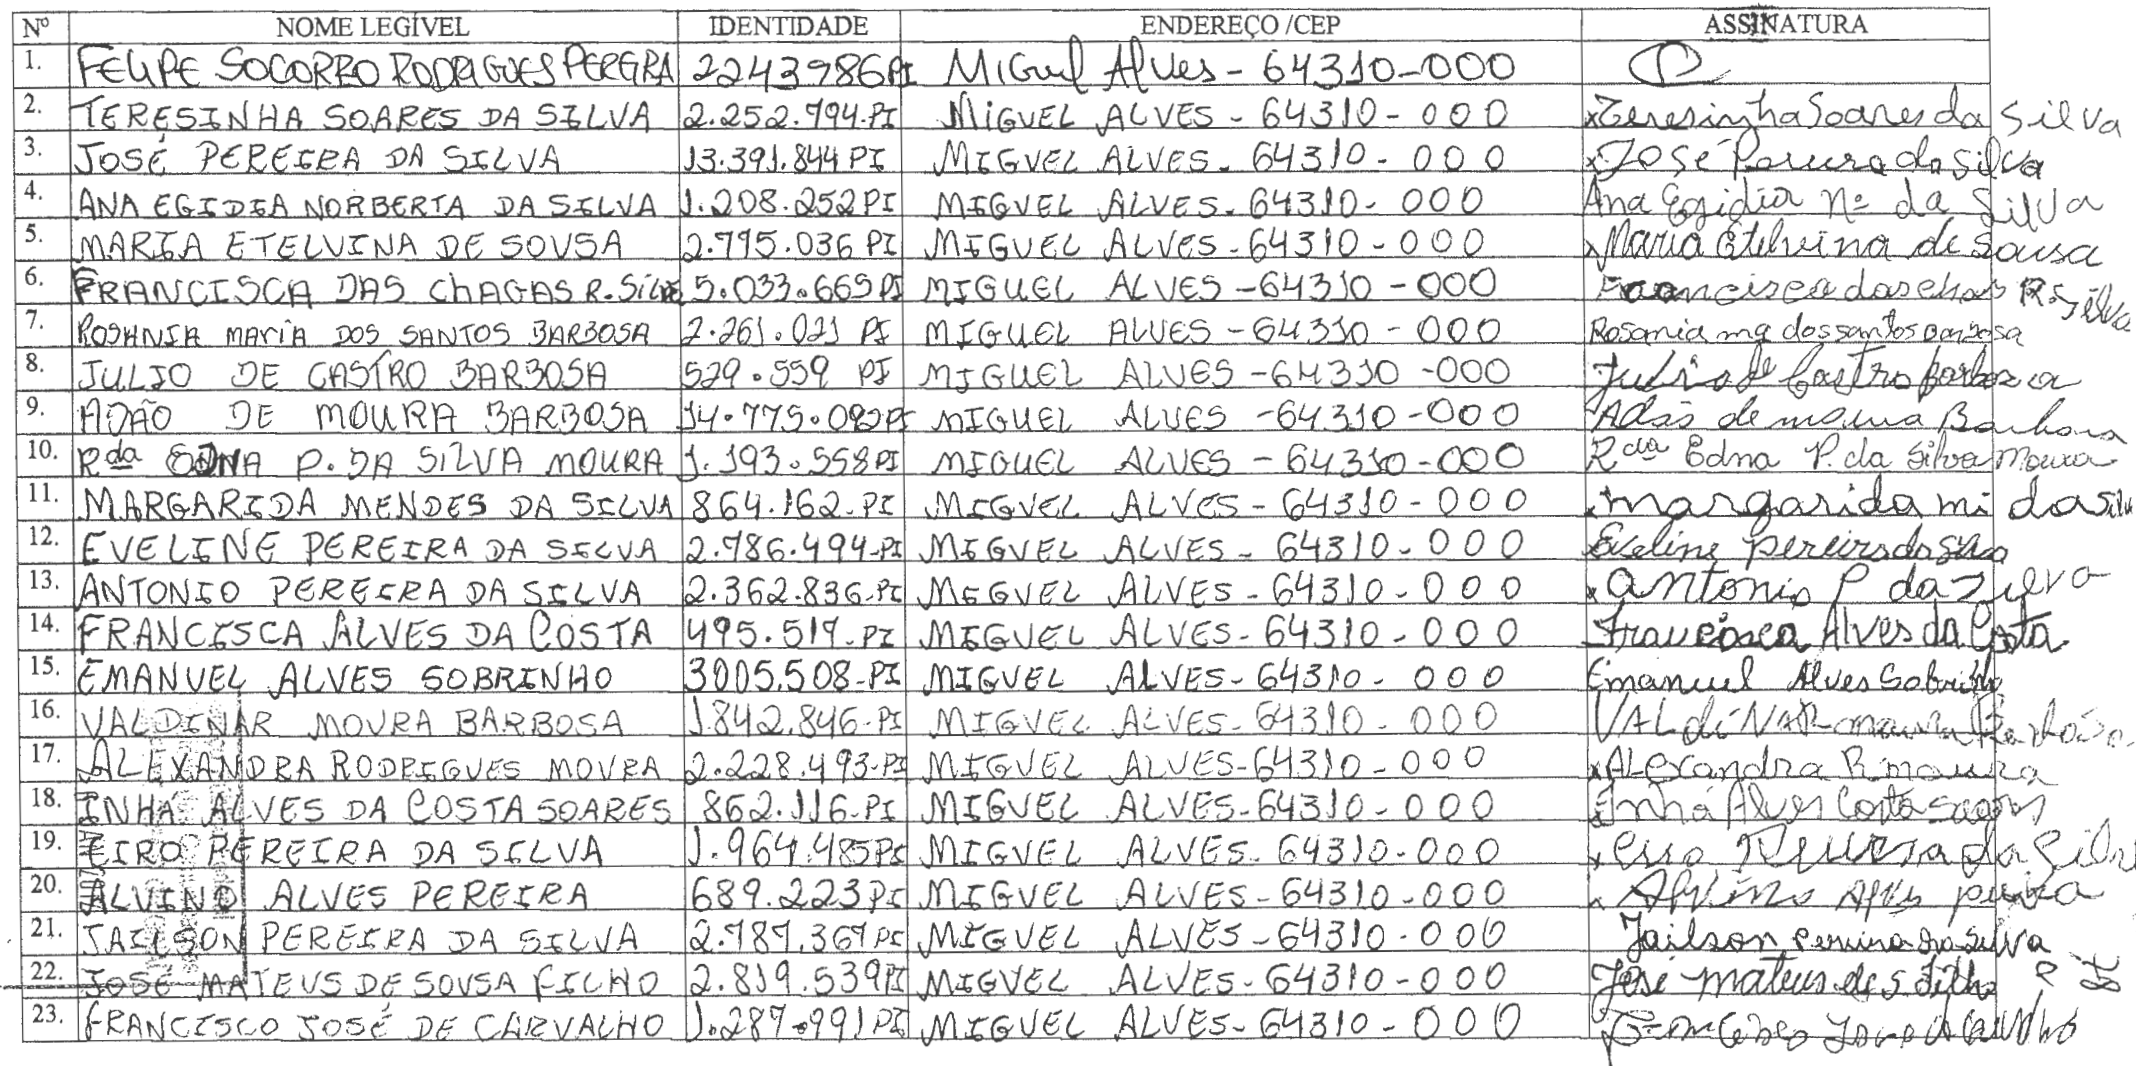 Nº NOME LEGÍVEL IDENTIDADE ENDEREÇO /CEP ASSINATURA
1. FELIPE SOCORRO RODRIGUES PEREIRA 2243986 PI Miguel Alves - 64310-000
2. TERESINHA SOARES DA SILVA 2.252.794-PI MIGUEL ALVES - 64310-000 Teresinha Soares da Silva
3. JOSÉ PEREIRA DA SILVA 13.391.844 PI MIGUEL ALVES - 64310-000 José Pereira da Silva
4. ANA EGIDIA NORBERTA DA SILVA 1.208.252 PI MIGUEL ALVES - 64310-000 Ana Egidia Nº da Silva
5. MARIA ETELVINA DE SOUSA 2.795.036 PI MIGUEL ALVES - 64310-000 Maria Etelvina de Sousa
6. FRANCISCA DAS ChAGAS R. Silva 5.033.665 PI MIGUEL ALVES - 64310-000 R. Silva
7. ROSANIA MARIA DOS SANTOS BARBOSA 2.261.021 PI MIGUEL ALVES - 64310-000 Rosania mª dos santos barbosa
8. JULIO DE CASTRO BARBOSA 529.559 PI MIGUEL ALVES - 64310-000 Julio de Castro Barboza
9. ADÃO DE MOURA BARBOSA MIGUEL ALVES - 64310-000 Adão de moura Barbosa
10. Rda EDNA P. DA SILVA MOURA 1.193.558 PI MIGUEL ALVES - 64310-000 Rda Edna P. da Silva Moura
11. MARGARIDA MENDES DA SILVA 864.162-PI MIGUEL ALVES - 64310-000 margarida mi da Silv
12. EVELINE PEREIRA DA SILVA 2.786.494-PI MIGUEL ALVES - 64310-000 Eveline pereira da Silva
13. ANTONIO PEREIRA DA SILVA 2.362.836-PI MIGUEL ALVES - 64310-000 antonio P da Silva
14. FRANCISCA ALVES DA COSTA 495.517-PI MIGUEL ALVES - 64310-000 Francisca Alves da Costa
15. EMANUEL ALVES SOBRINHO 3005.508-PI MIGUEL ALVES - 64310-000 Emanuel Alves Sobrinho
16. VALDINAR MOURA BARBOSA 1.842.846-PI MIGUEL ALVES - 64310-000 VALdiNAR moura Barbosa
17. ALEXANDRA RODRIGUES MOURA 2.228.493-PI MIGUEL ALVES - 64310-000 Alexandra R. moura
18. INHÁ ALVES DA COSTA SOARES 862.116-PI MIGUEL ALVES - 64310-000 Inhá Alves Costa soares
19. CIRO PEREIRA DA SILVA 1.964.485 PI MIGUEL ALVES - 64310-000 Ciro Pereira da Silva
20. ALVINO ALVES PEREIRA 689.223 PI MIGUEL ALVES - 64310-000 Alvino Alves
21. JAILSON PEREIRA DA SILVA 2.787.367 PI MIGUEL ALVES - 64310-000 Jailson Pereira da Silva
22. JOSÉ MATEUS DE SOUSA FILHO 2.819.539 PI MIGUEL ALVES - 64310-000 José mateus de S Filho
23. FRANCISCO JOSÉ DE CARVALHO 1.287.991 PI MIGUEL ALVES - 64310-000